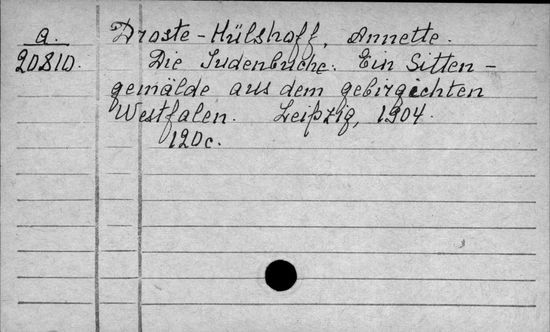 a. Droste-Hülshoff, Annette.
20810. Die Judenbuche. Ein Sitten-
gemälde aus dem gebirgechten
Westfalen. Leipzig, 1904.
120c.